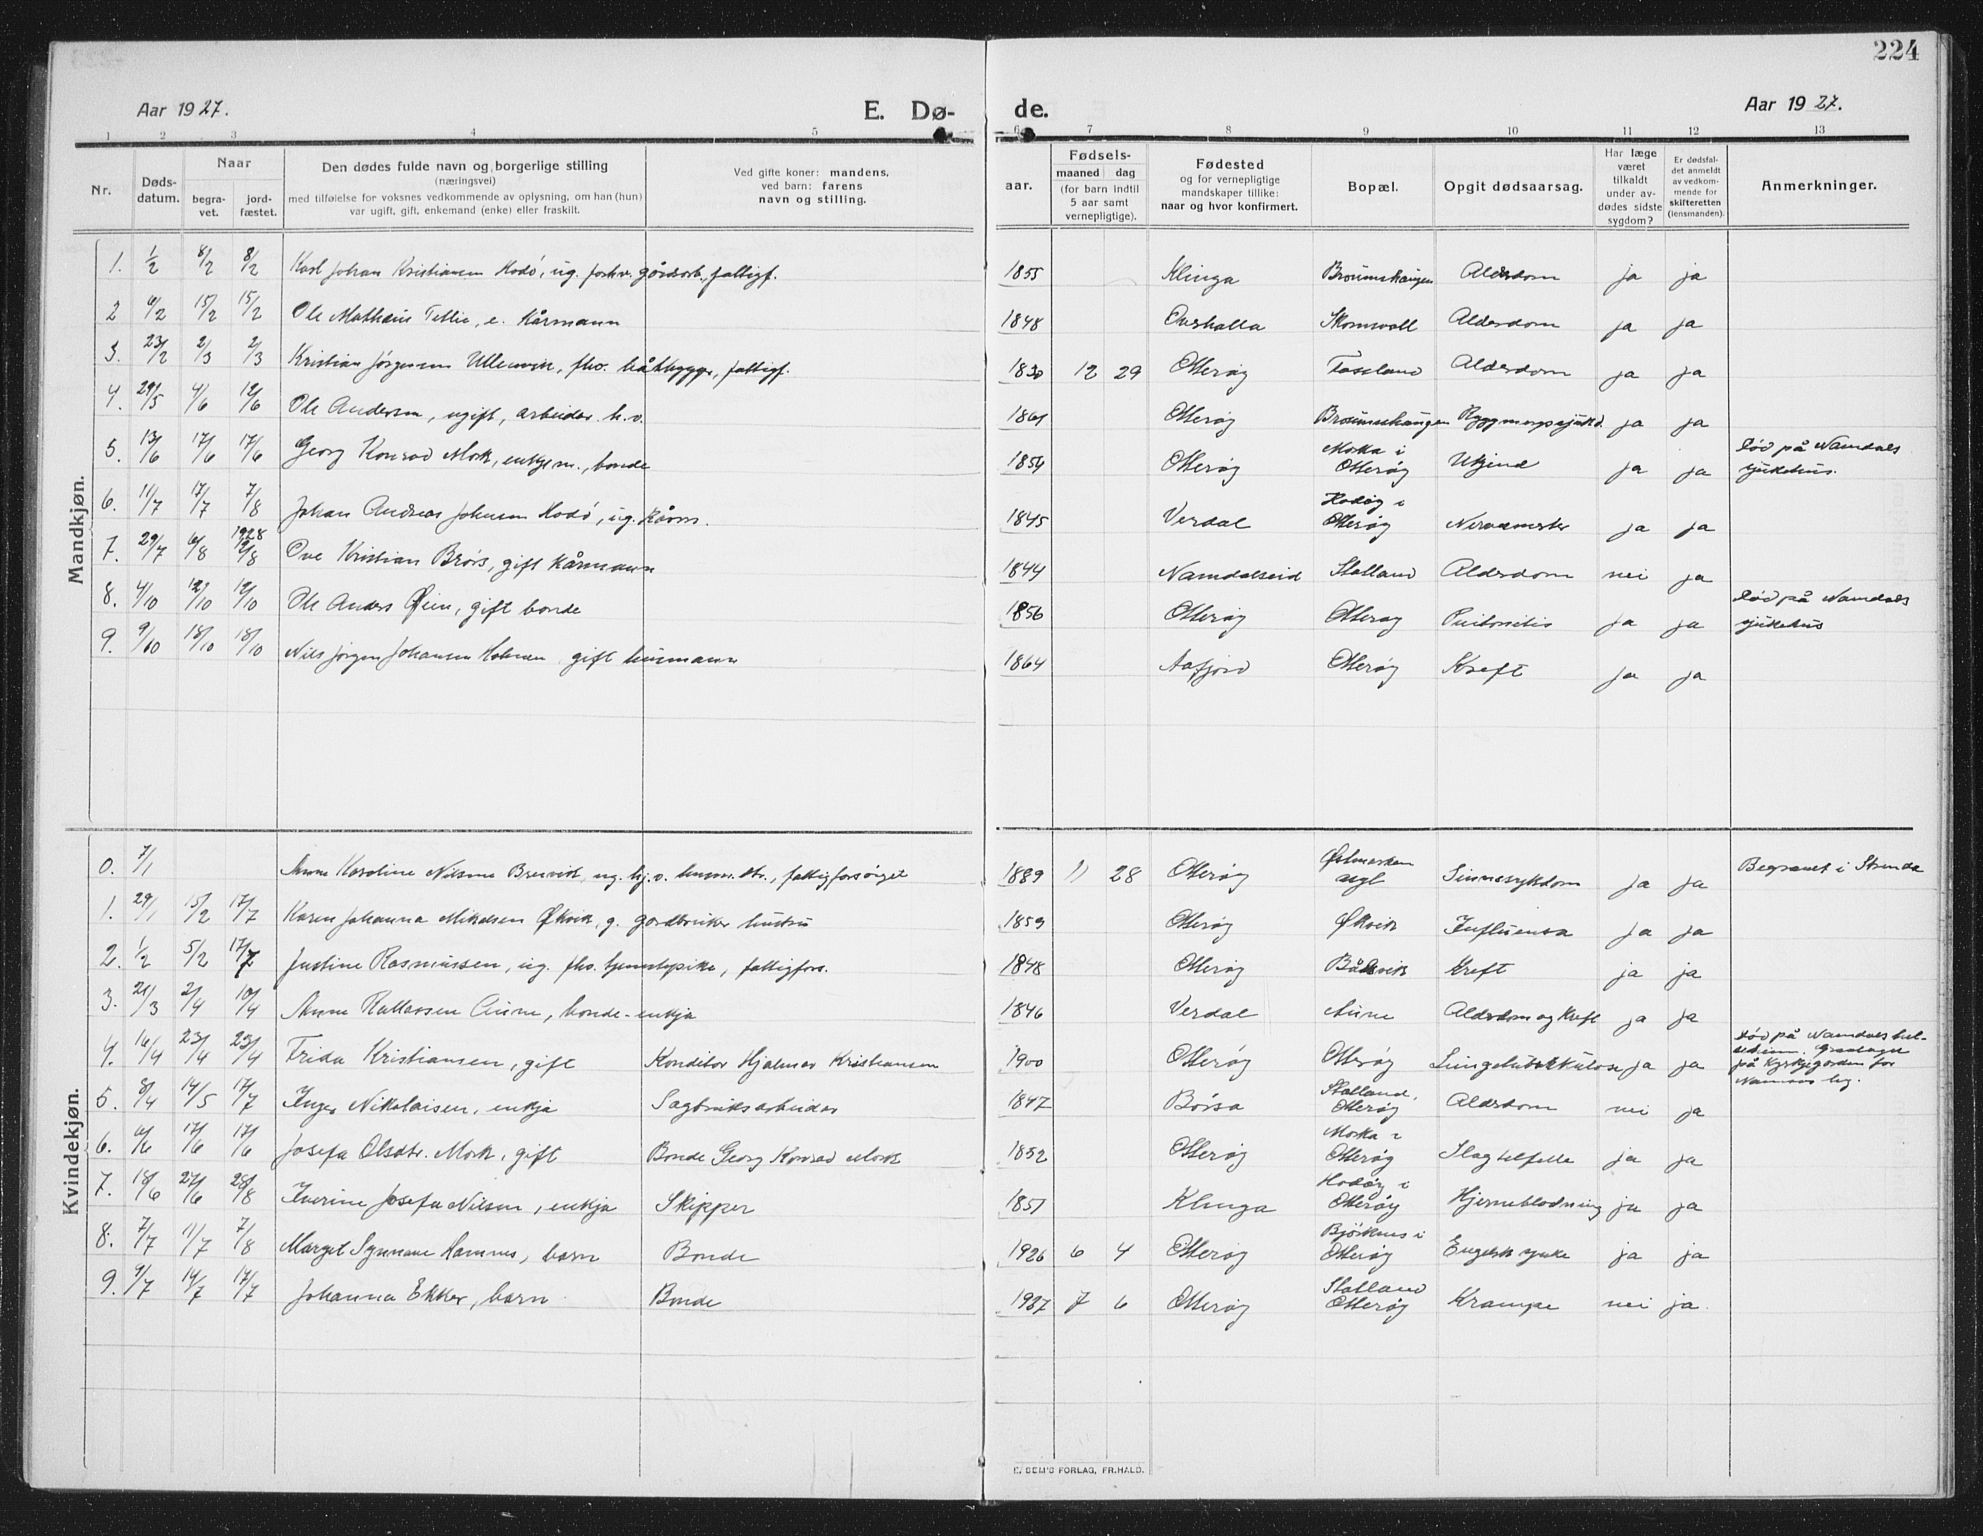 224
Aar 1927. E. Dø- de. Aar 1927.
1 2 3 4 5 6 7 8 9 10 11 12 13
Nr. Døds-datum. Naar begra-vet. jord-fæstet. Den dødes fulde navn og borgerlige stilling (næringsvei) med tilføielse for voksnes vedkommende av oplysning, om han (hun) var ugift, gift, enkemand (enke) eller fraskilt. Ved gifte koner: mandens, ved barn: farens navn og stilling. aar. Fødsels- maaned dag (for barn indtil 5 aar samt vernepligtige). Fødested og for vernepligtige mandskaper tillike: naar og hvor konfirmert. Bopæl. Opgit dødsaarsag. Har læge været tilkaldt under av-dødes sidste sygdom? Er dødsfal-det anmeldt av vedkom-mende for skifteretten (lensmanden). Anmerkninger.
Mandkjøn.
1. 1/2 8/2 8/2 Karl Johan Kristiansen Hodø, ug. forhv. gårdsarb., fattigf. 1855 Klinga Alderdom ja ja
2 6/2 15/2 15/2 Ole Mathæus Tetlie, e. kårmann 1848 Overhalla Alderdom ja ja
3. 23/2 2/3 2/3 Kristian Jørgensen fhv. båtbygger, fattigf. 1830 12 29 Otterøy Fossland Alderdom ja ja
4. 29/5 4/6 12/6 Ole Andersen, ugift, arbeider. h.v. 1861 Otterøy Ryggmargssjukd. ja ja
5. 13/6 17/6 17/6 Georg Konrad Mork, enkjem., bonde 1854 Otterøy Morka i Otterøy Ukjend ja ja Død på Namdals sjukehus.
6. 11/7 17/7 7/8 Johan Andreas Johnsen Hodø, ug. kårm. 1845 Verdal Hodøy i Otterøy ja ja
7. 29/7 6/8 1928 12/8 Ove Kristian Brørs, gift kårmann 1844 Namdalseid Statland Alderdom nei ja
8. 4/10 12/10 12/10 Ole Anders Øien, gift bonde 1856 Otterøy Otterøy ja ja Død på Namdals sjukehus
9. 9/10 18/10 18/10 Nils Jørgen Johansen Holmen gift husmann 1864 Aafjord Otterøy Kreft ja ja
Kvindekjøn.
0. 7/1 Anne Karoline Nilsine Breivik, ug. hj.v. husm.dtr., fattigforsørget 1889 11 28 Otterøy Østmarken asyl Sinnssykdom ja ja Begravet i Strinda
1. 29/1 15/2 17/7 Karen Johanna Mikalsen Økvik, g. gardbruker hustru 1859 Otterøy Økvik Influensa ja ja
2. 1/2 5/2 17/7 Justine Rasmussen, ug. fhv. tjenestepike, fattigfors. 1848 Otterøy Kreft ja ja
3. 21/3 2/4 10/4 Anne Aune, bonde-enkja 1846 Verdal Aune Alderdom og kreft ja ja
4. 16/4 23/4 23/4 Frida Kristiansen, gift Konditor Hjalmar Kristiansen 1900 Otterøy Otterøy Lungetuberkulose ja ja Død på Namdals hel-seheim. Gravlagt på kyrkjegarden for Namsos by.
5. 8/4 14/5 17/7 Inger Nikolaisen, enkja Sagbruksarbeider 1847 Børsa Statland, Otterøy Alderdom nei ja
6. 6/6 17/6 17/6 Josefa Olsdtr. Mork, gift Bonde Georg Konrad Mork 1852 Otterøy Morka i Otterøy Slagtilfelle ja ja
7. 18/6 27/6 28/8 Iverine Josefa Nilsen, enkja Skipper 1851 Klinga Hodøy i Otterøy Hjerneblødning ja ja
8. 7/7 11/7 7/8 Margit Synnøve Hamnes, barn Bonde 1926 6 4 Otterøy Otterøy Engelsk sjuke ja ja
9. 9/7 14/7 17/7 Johanna Ekker, barn Bonde 1927 7 6 Otterøy Statland Otterøy Krampe nei ja.
E. SEM'S FORLAG, FR.HALD.